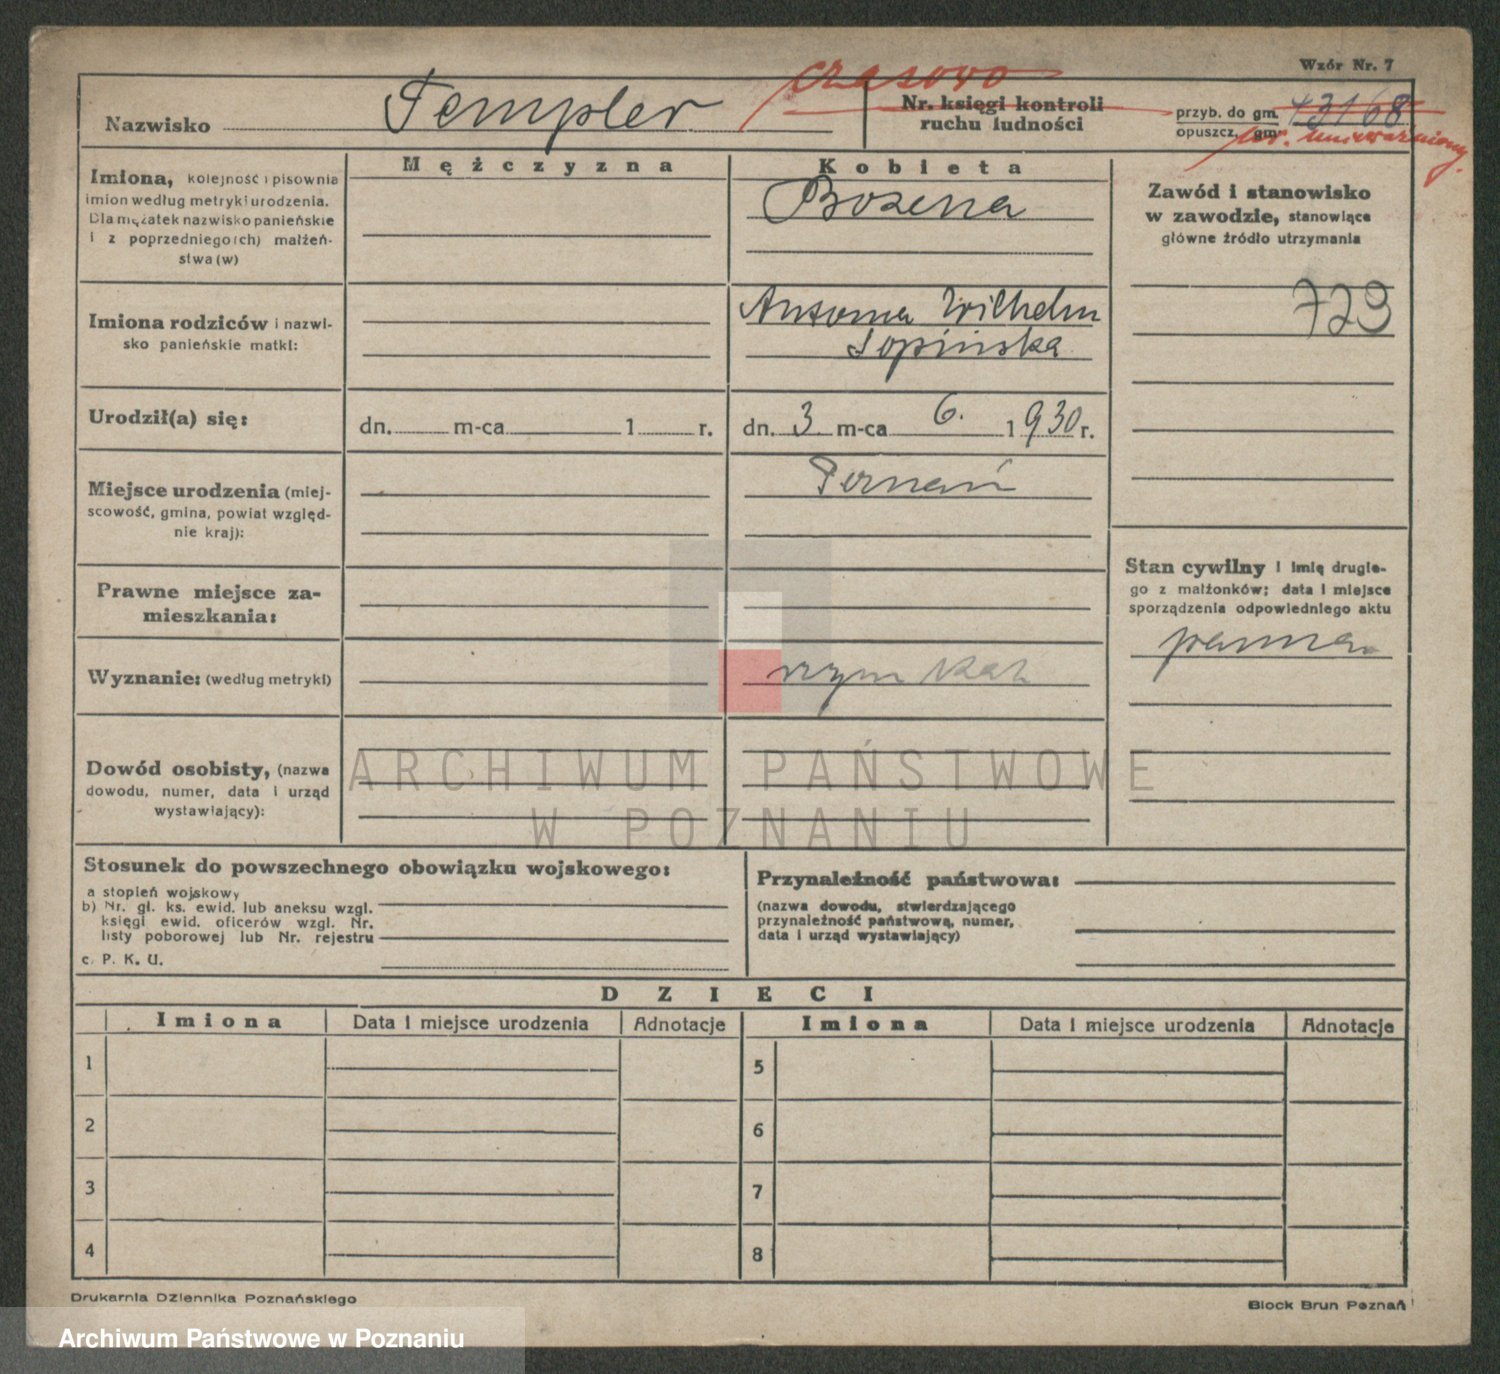 Wzór Nr. 7
czasowo
Nazwisko Templer
Nr. księgi kontroli
ruchu ludności
przyb. do gm. 43168
opuszcz. gm.
unieważniony.
Mężczyzna
Kobieta
Imiona, kolejność i pisownia
imion według metryki urodzenia.
Dla mężatek nazwisko panieńskie
i z poprzedniego(ch) małżeń-
stwa (w)
Bożena
Zawód i stanowisko
w zawodzie, stanowiące
główne źródło utrzymania
729
Imiona rodziców i nazwi-
sko panieńskie matki:
Antonina Wilhelm
Łopińska
Urodził(a) się:
dn. m-ca 1 r.
dn. 3 m-ca 6. 1930 r.
Miejsce urodzenia (miej-
scowość, gmina, powiat wzgled-
nie kraj):
Poznań
Prawne miejsce za-
mieszkania:
Stan cywilny i imię drugie-
go z małżonków; data i miejsce
sporządzenia odpowiedniego aktu
panna
Wyznanie: (według metryki)
rzym kat
Dowód osobisty, (nazwa
dowodu, numer, data i urząd
wystawiający):
ARCHIWUM PAŃSTWOWE
W POZNANIU
Stosunek do powszechnego obowiązku wojskowego:
a stopień wojskowy
b) Nr. gł. ks. ewid. lub aneksu wzgl.
księgi ewid. oficerów wzgl. Nr.
listy poborowej lub Nr. rejestru
c. P. K. U.
Przynależność państwowa:
(nazwa dowodu, stwierdzającego
przynależność państwową, numer,
data i urząd wystawiający)
DZIECI
Imiona Data i miejsce urodzenia Adnotacje Imiona Data i miejsce urodzenia Adnotacje
1 5
2 6
3 7
4 8
Drukarnia Dziennika Poznańskiego
Block Brun Poznań
Archiwum Państwowe w Poznaniu